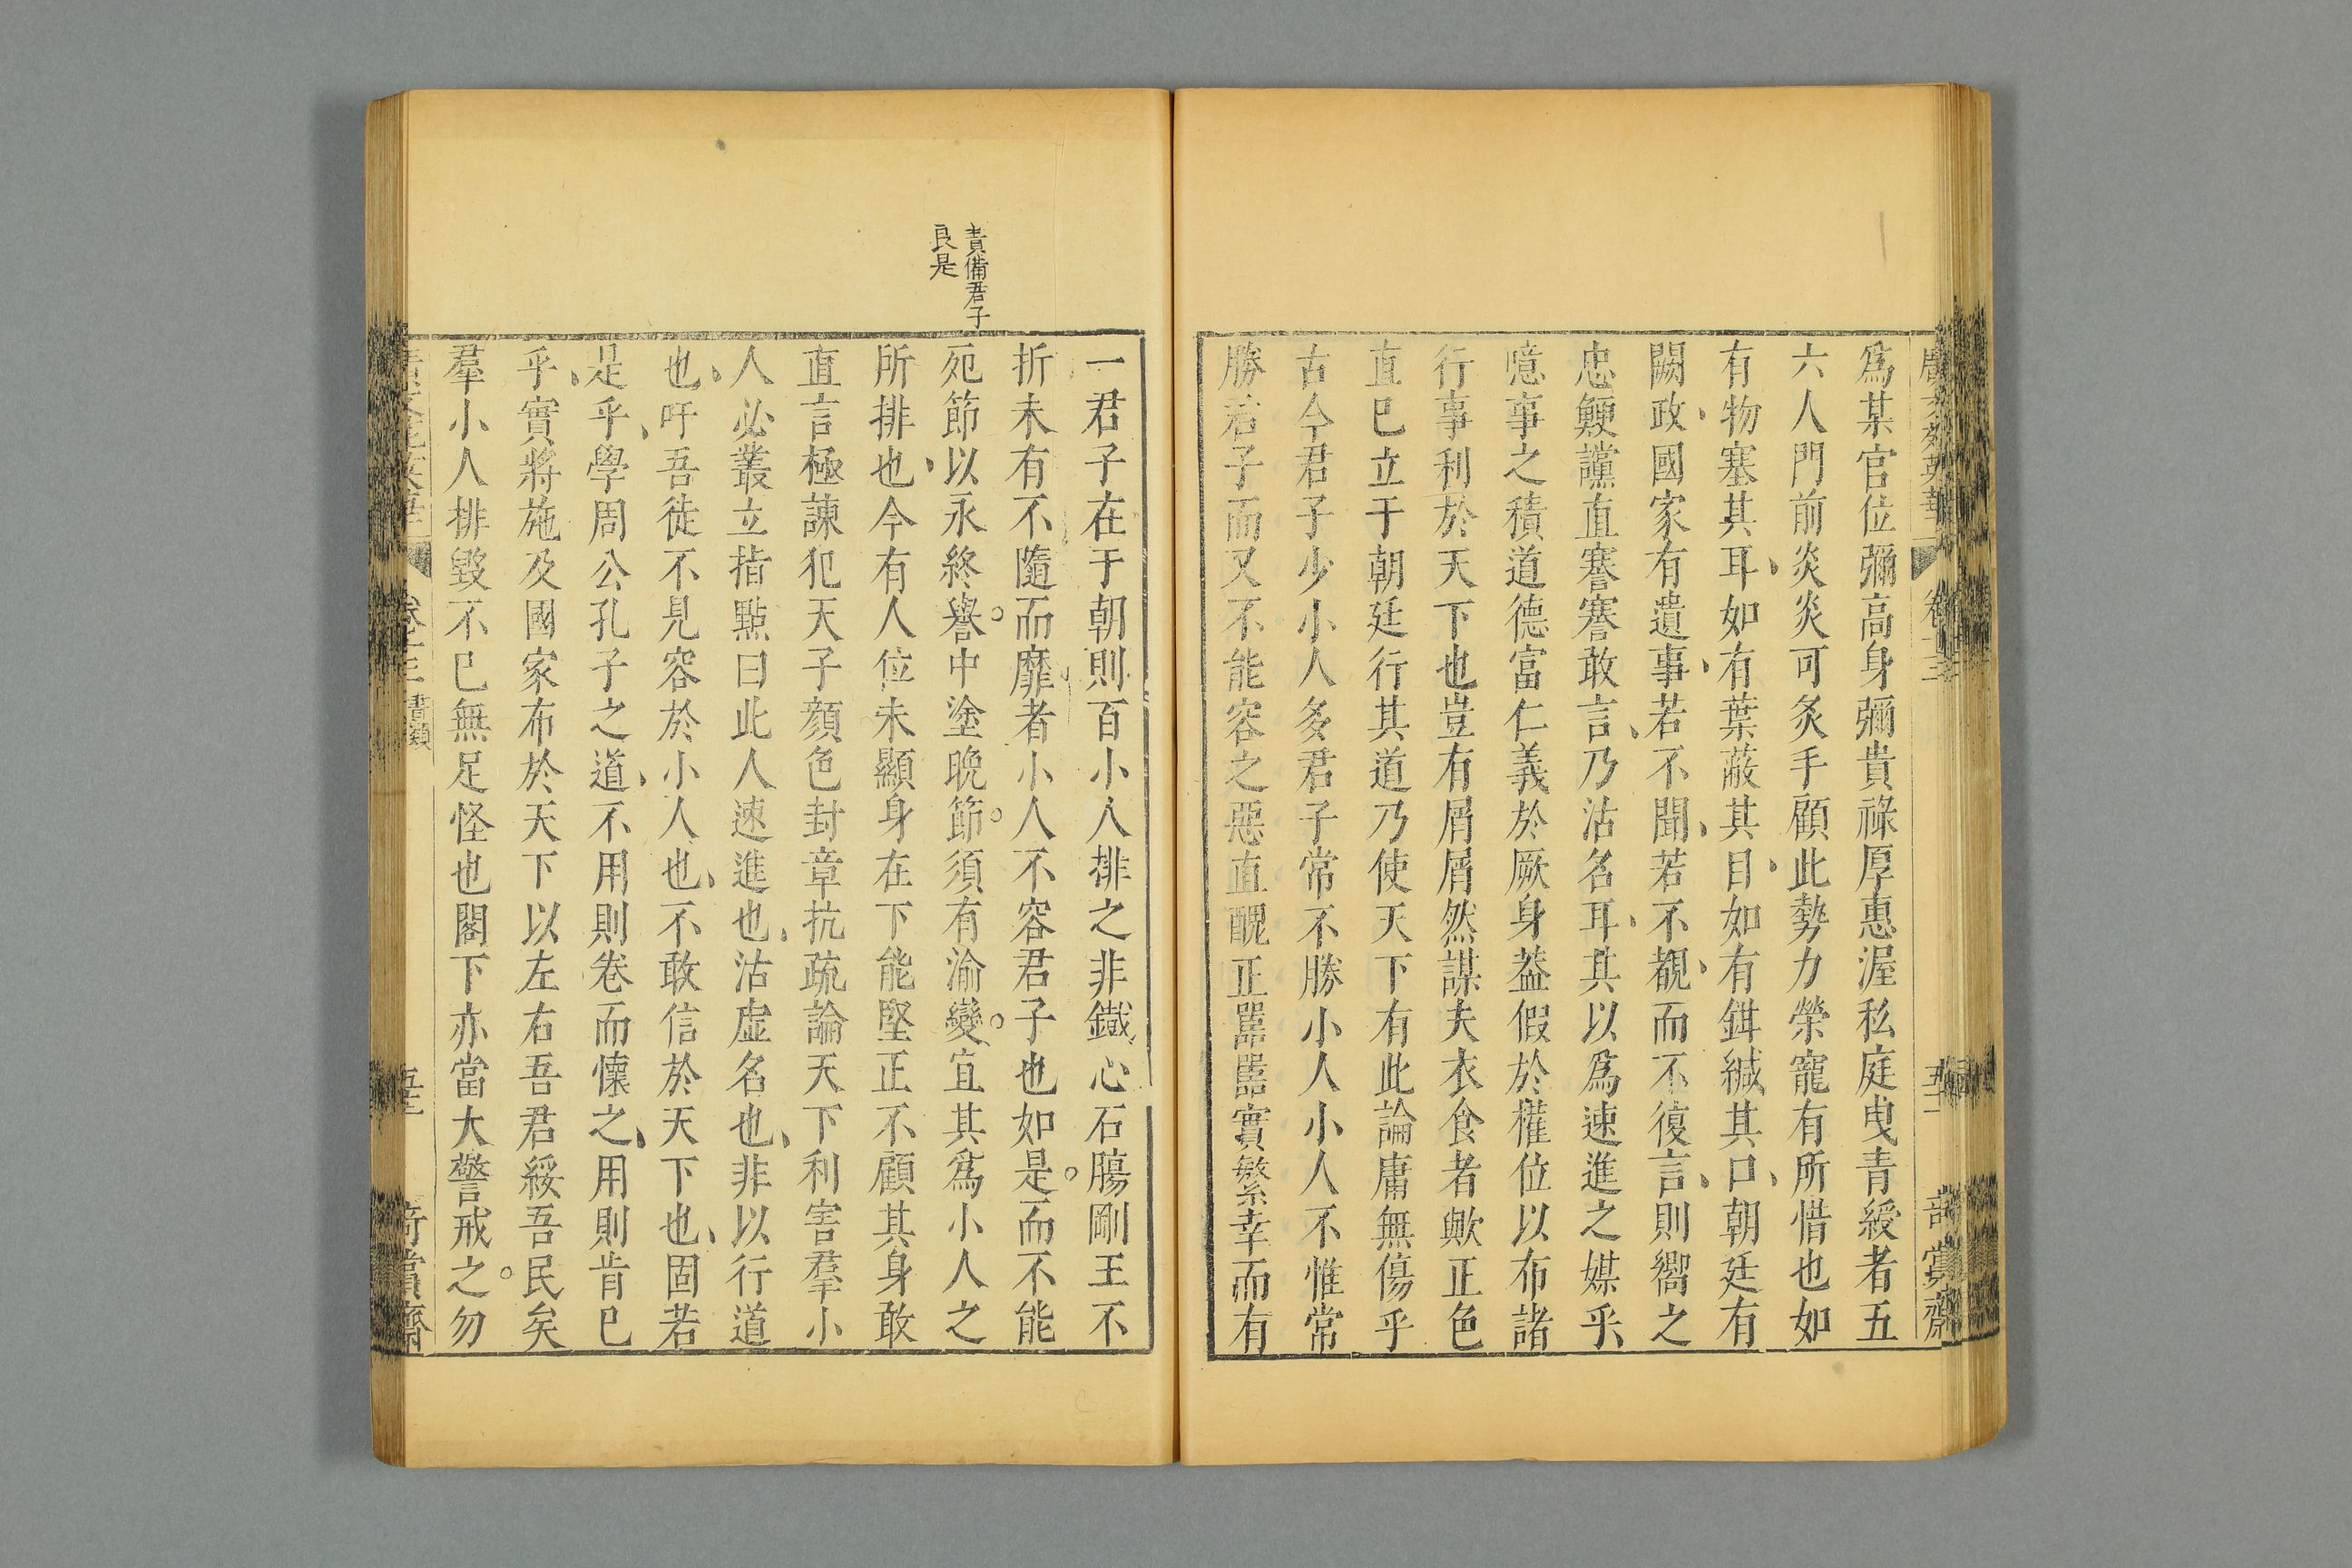 為某官位彌高身彌貴祿厚惠渥私庭曳青綬者五
六人門前炎炎可炙手顧此勢力榮寵有所惜也如
有物塞其耳如有葉蔽其目如有鉗緘其口朝廷有
闕政國家有遺事若不聞若不覩而不復言則嚮之
忠鯁讜直謇謇敢言乃沽名耳其以為速進之媒乎
噫事之積道德富仁義於厥身葢假於權位以布諸
行事利於天下也豈有屑屑然謀夫衣食者歟正色
直已立于朝廷行其道乃使天下有此論庸無傷乎
古今君子少小人多君子常不勝小人小人不惟常
勝君子而又不能容之惡直醜正嚚嚚實繁幸而有
責備君子
良是
一君子在于朝則百小人排之非鐵心石膓剛王不
折未有不隨而靡者小人不容君子也如是而不能
宛節以永終譽中塗晚節須有渝變宜其為小人之
所排也今有人位未顯身在下能堅正不顧其身敢
直言極諫犯天子顔色封章抗疏論天下利害羣小
人必叢立指點曰此人速進也沽虛名也非以行道
也吁吾徒不見容於小人也不敢信於天下也固若
是乎學周公孔子之道不用則卷而懷之用則肯已
乎實將施及國家布於天下以左右吾君綏吾民矣
羣小人排毀不已無足怪也閣下亦當大警戒之勿